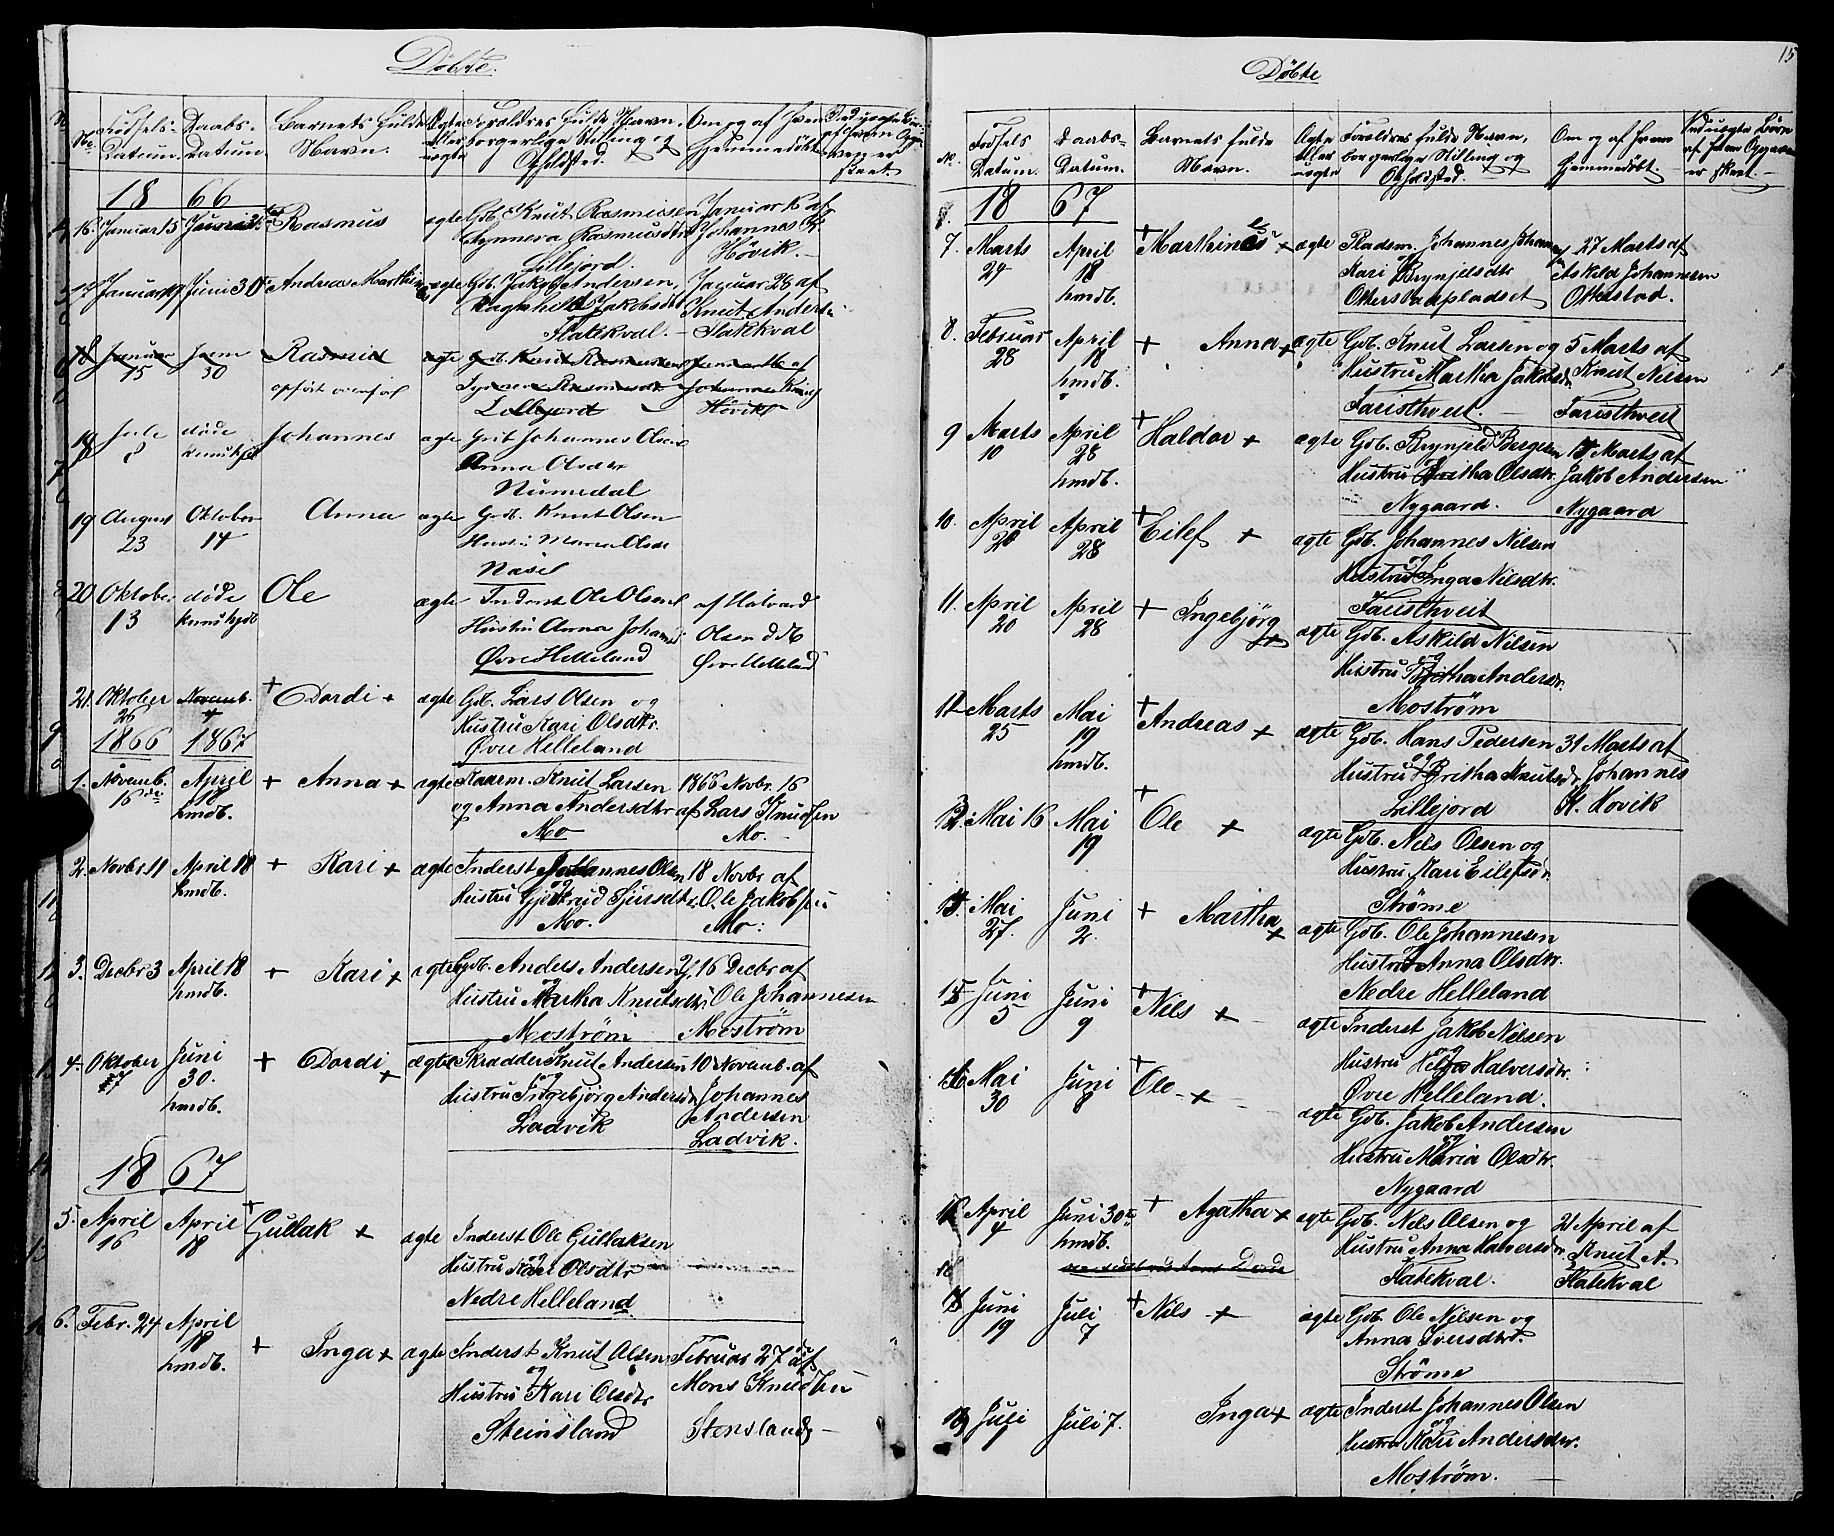 Döbte.
No. Fødsels-Datum. Daabs-Datum. Barnets fulde Navn. Ægte eller uægte Forældres fulde Navn, borgerlige Stilling og Opholdsted. Om og af hvem hjemmedöbt
18 66
16. Januar 15 Rasmus ægte Gdb. Knut Rasmusen Januar 16 af
Rasmusdtr Johannes K.
Lillejord. Hövik.
17 Januar 19 Juni 30 Andreas Marthin ægte Gdb. Jakob Andersen, Januar 28 af
Jakobsdtr Knut Anders
Flatekval. Flatekval
18 Januar Juni Rasmus ægte Gdb. Knut Rasmusen af
15 30 Rasmusdtr Johannes
Lillejord Hövik
18 døde Johannes ægte Johannes Olsen
Anna Olsdtr
Numedal
19 August Oktober Anna ægte Gdb. Knut Olsen
23 14 Hustru
20 Oktober døde Ole ægte Inderst Ole Olsen af Halvard
13 Hustru Anna Johannes Olsen
Øvre Helleland Øvre Helleland
21. Oktober Novemb. + Dordi + ægte Gdb. Lars Olsen og
26 4 Hustru Kari Olsdtr.
Øvre Helleland
1866 1867
1. Novemb. April + Anna + ægte Knut Larsen 1866 Novbr. 16
16 18 og Anna Andersdtr af Lars Knudsen
hmdb. Mo Mo.
2. Novbr 11 April 18 + Kari + ægte Inderst Johannes Olsen 18 Novbr af
hmdb. Hustru Sjursdtr. Ole Jakobsen
Mo. Mo.
3. Decbr 3 April 18 + Kari + ægte Gdb. Anders Andersen 16 Decbr af
hmdb. Hustru Martha Knutsdtr Ole Johannesen
Moström Moström
4. Oktober Juni + Dordi + ægte Skrædder Knut Andersen 10 Novemb. af
27 30. Hustru Ingebjörg Andersdtr Johannes
hmdb. Ladvik Andersen
Ladvik.
18 67
5. April April + Gullak + ægte Inderst Ole Gullaksen
16 18 Hustru Kari Olsdtr
Nedre Helleland
6. Febr. 24 April + Inga + ægte Inderst Knut Olsen Februar 27 af
18 Hustru Kari Olsdtr Mons Knudsen
hmdb. Steinsland Stensland
15
Döbte
No. Fødsels Datum. Daabs-Datum. Barnets fulde Navn. Ægte eller uægte Forældres fulde Navn, borgerlige Stilling og Opholdsted. Om og af hvem hjemmedöbt. Ved uægte Börn af hvem Opgaven er skeet.
18 67
7. Marts April + Marthines + ægte Pladsm. Johannes Johannes 27 Marts af
24 18 Kari Brynjelsdtr Askild Johannesen
hmdb. Otterstadpladset Otterstad.
8. Februar April + Anna + ægte Gdb. Knut Larsen og 5 Marts af
28 18 Hustru Martha Jakobsdtr Knut Nilsen
hmdb. Faristhveit. Faristhveit
9 Marts April + Haldor + ægte Gdb. Brynjeld Bergesen Marts af
10 28 Hustru Olsdtr. Jakob Andersen
hmdb. Nygaard. Nygaard
10. April April + Eilef + ægte Gdb. Johannes Nilsen
20 28 Hustru Inga Nilsdtr.
Faristhveit
11. April April + Ingebjörg + ægte Gdb. Askild Nilsen
20 28 Hustru Britha Andersdtr.
Moström
Marts Mai + Andreas + ægte Gdb. Hans Pedersen 31 Marts af
25 19 Hustru Britha Knutsdtr Johannes
hmdb. Lillejord K. Hovik
Mai 16 Mai + Ole + ægte Gdb. Nils Olsen og
19 Hustru Kari Eilefsdtr.
Ströme
Mai Juni + Martha + ægte Gdb. Ole Johannesen
27. 2. Hustru Anna Olsdtr.
Nedre Helleland
Juni Juni + Nils + ægte Inderst Jakob Nilsen
5 9 Hustru Helga Halversdtr.
Øvre Helleland.
Mai Juni + Ole + ægte Gdb. Jakob Andersen
30 8 Hustru Maria Olsdtr.
Nygaard
April Juni 30 + Agatha + ægte Gdb. Nils Olsen og 21 April af
4 hmdb. Hustru Anna Halversdtr Knut A.
Flatekval. Flatekval
Juni Juli + Nils + ægte Gdb. Ole Nilsen og
19 7 Anna Iversdtr.
Ströme
Juli Juli 7. Inga + ægte Inderst Johannes Olsen
1 Hustru Kari Andersdtr.
Moström.